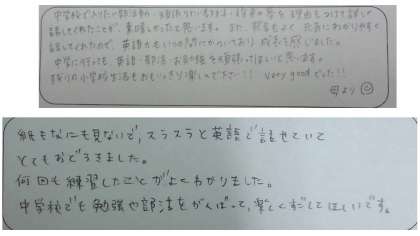 中学校で入りたい部活動や頑張りたいこと、将来の夢を理由をつけて詳しく
話してくれたことが、素晴しかったと思います。また、発音もよく元気にわかりやすく
話してくれたので、英語力もいつの間にかついており成長を感じました。
中学に行っても、英語・部活・お勉強を頑張ってほしいと思います。
残りの小学校生活もおもいっきり楽しんで下さい!! Very goodでした!!
母より
紙もなにも見ないで、スラスラと英語で話せていて
とてもおどろきました。
何回も練習したことがよくわかりました。
中学校でも勉強や部活をがんばって、楽しくすごしてほしいです。